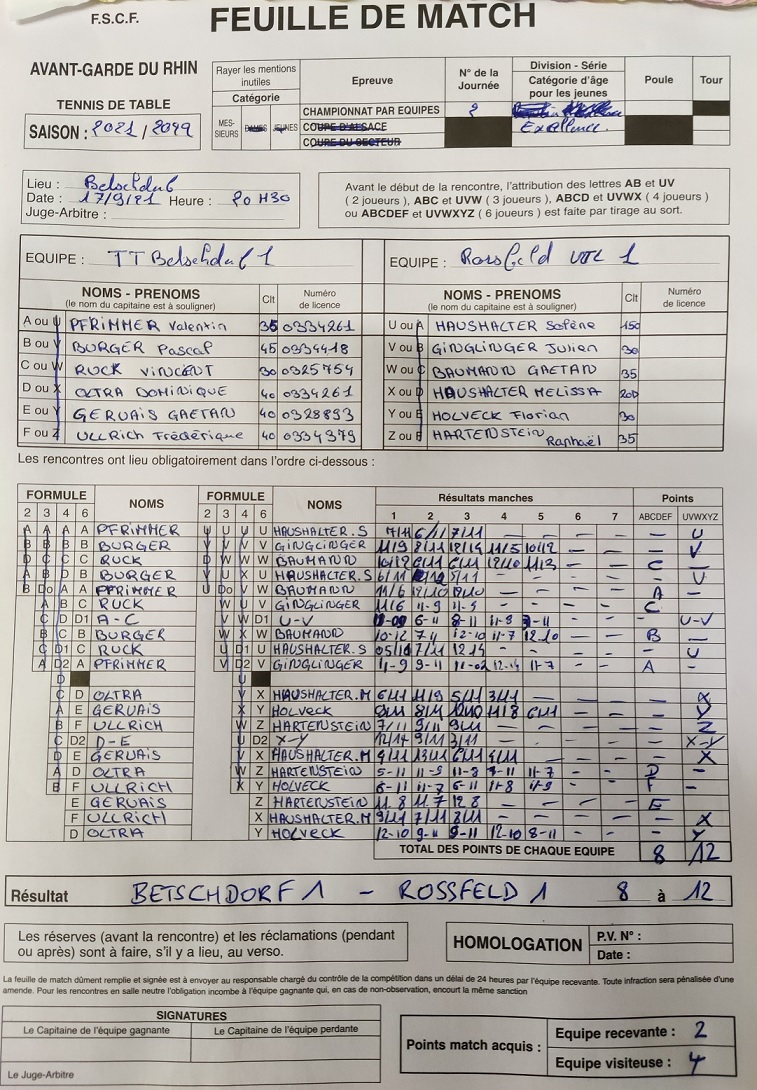 F.S.C.F. FEUILLE DE MATCH
AVANT-GARDE DU RHIN
TENNIS DE TABLE
SAISON : 2021 / 2022
Rayer les mentions inutiles
Catégorie
MES-SIEURS DAMES JEUNES
Epreuve N° de la Journée Division - Série Catégorie d'âge pour les jeunes Poule Tour
CHAMPIONNAT PAR EQUIPES 2
COUPE D'ALSACE Excellence
COUPE DU SECTEUR
Lieu : Betschdorf
Date : 17/9/21 Heure : 20 H30
Juge-Arbitre :
Avant le début de la rencontre, l'attribution des lettres AB et UV
( 2 joueurs ), ABC et UVW ( 3 joueurs ), ABCD et UVWX ( 4 joueurs )
ou ABCDEF et UVWXYZ ( 6 joueurs ) est faite par tirage au sort.
EQUIPE : TT Betschdorf 1 EQUIPE : Rossfeld 1
NOMS - PRENOMS (le nom du capitaine est à souligner) Clt Numéro de licence NOMS - PRENOMS (le nom du capitaine est à souligner) Clt Numéro de licence
A ou U PFRIMMER Valentin 35 0334261 U ou A HAUSHALTER Solène 150
B ou V BURGER Pascal 45 0334418 V ou B GINGLINGER Julien 30
C ou W RUCK VINCENT 30 0325754 W ou C BAUMANN GAETAN 35
D ou X OLTRA DOMINIQUE 40 0334261 X ou D HAUSHALTER MELISSA 200
E ou Y GERVAIS GAETAN 40 0328893 Y ou E HOLVECK Florian 30
F ou Z ULLRICH Frédérique 40 0334379 Z ou F HARTENSTEIN Raphaël 35
Les rencontres ont lieu obligatoirement dans l'ordre ci-dessous :
FORMULE NOMS FORMULE NOMS Résultats manches Points
2 3 4 6 2 3 4 6 1 2 3 4 5 6 7 ABCDEF UVWXYZ
A A A A PFRIMMER U U U U HAUSHALTER.S 7/11 6/11 7/11 — — — — — U
B B B B BURGER V V V V GINGLINGER 11/9 8/11 12/14 11/5 10/12 — — — V
C RUCK W BAUMANN C —
B BURGER U HAUSHALTER.S 6/11 5/11 — — — — — U
A PFRIMMER W BAUMANN 11/6 12/10 A —
C RUCK V GINGLINGER 11/6 11-9 11-5 — — — — C
D1 A-C D1 U-V 6-11 8-11 11-8 U-V
B BURGER W BAUMANN 10-12 7-11 12-10 11-7 12.10 — — B —
C RUCK U HAUSHALTER.S 7/11 — U
A PFRIMMER V GINGLINGER 11-9 9-11 11-7 — — A —
D OLTRA X HAUSHALTER.M 6/11 11/9 5/11 3/11 — — — — X
E GERVAIS Y HOLVECK 8/11 11/8 6/11 — — — Y
F ULLRICH Z HARTENSTEIN 7/11 9/11 9/11 — — — — — Z
D2 D-E D2 X-Y 12/14 9/11 3/11 X-Y
E GERVAIS X HAUSHALTER.M 6/11 — X
D OLTRA Z HARTENSTEIN 5-11 11-9 11-8 7-11 11-7 — — D —
F ULLRICH Y HOLVECK 6-11 11-7 6-11 11-8 11-9 — — F —
E GERVAIS Z HARTENSTEIN 11.8 11.7 12.8 — — — — E
F ULLRICH X HAUSHALTER.M 9/11 7/11 8/11 — — — — — X
D OLTRA Y HOLVECK 12-10 9-11 9-11 12-10 8-11 — — — Y
TOTAL DES POINTS DE CHAQUE EQUIPE 8 12
Résultat BETSCHDORF 1 - ROSSFELD 1 8 à 12
Les réserves (avant la rencontre) et les réclamations (pendant
ou après) sont à faire, s'il y a lieu, au verso.
HOMOLOGATION P.V. N° :
Date :
La feuille de match dûment remplie et signée est à envoyer au responsable chargé du contrôle de la compétition dans un délai de 24 heures par l'équipe recevante. Toute infraction sera pénalisée d'une
amende. Pour les rencontres en salle neutre l'obligation incombe à l'équipe gagnante qui, en cas de non-observation, encourt la même sanction
SIGNATURES
Le Capitaine de l'équipe gagnante Le Capitaine de l'équipe perdante
Le Juge-Arbitre
Points match acquis : Equipe recevante : 2
Equipe visiteuse : 4